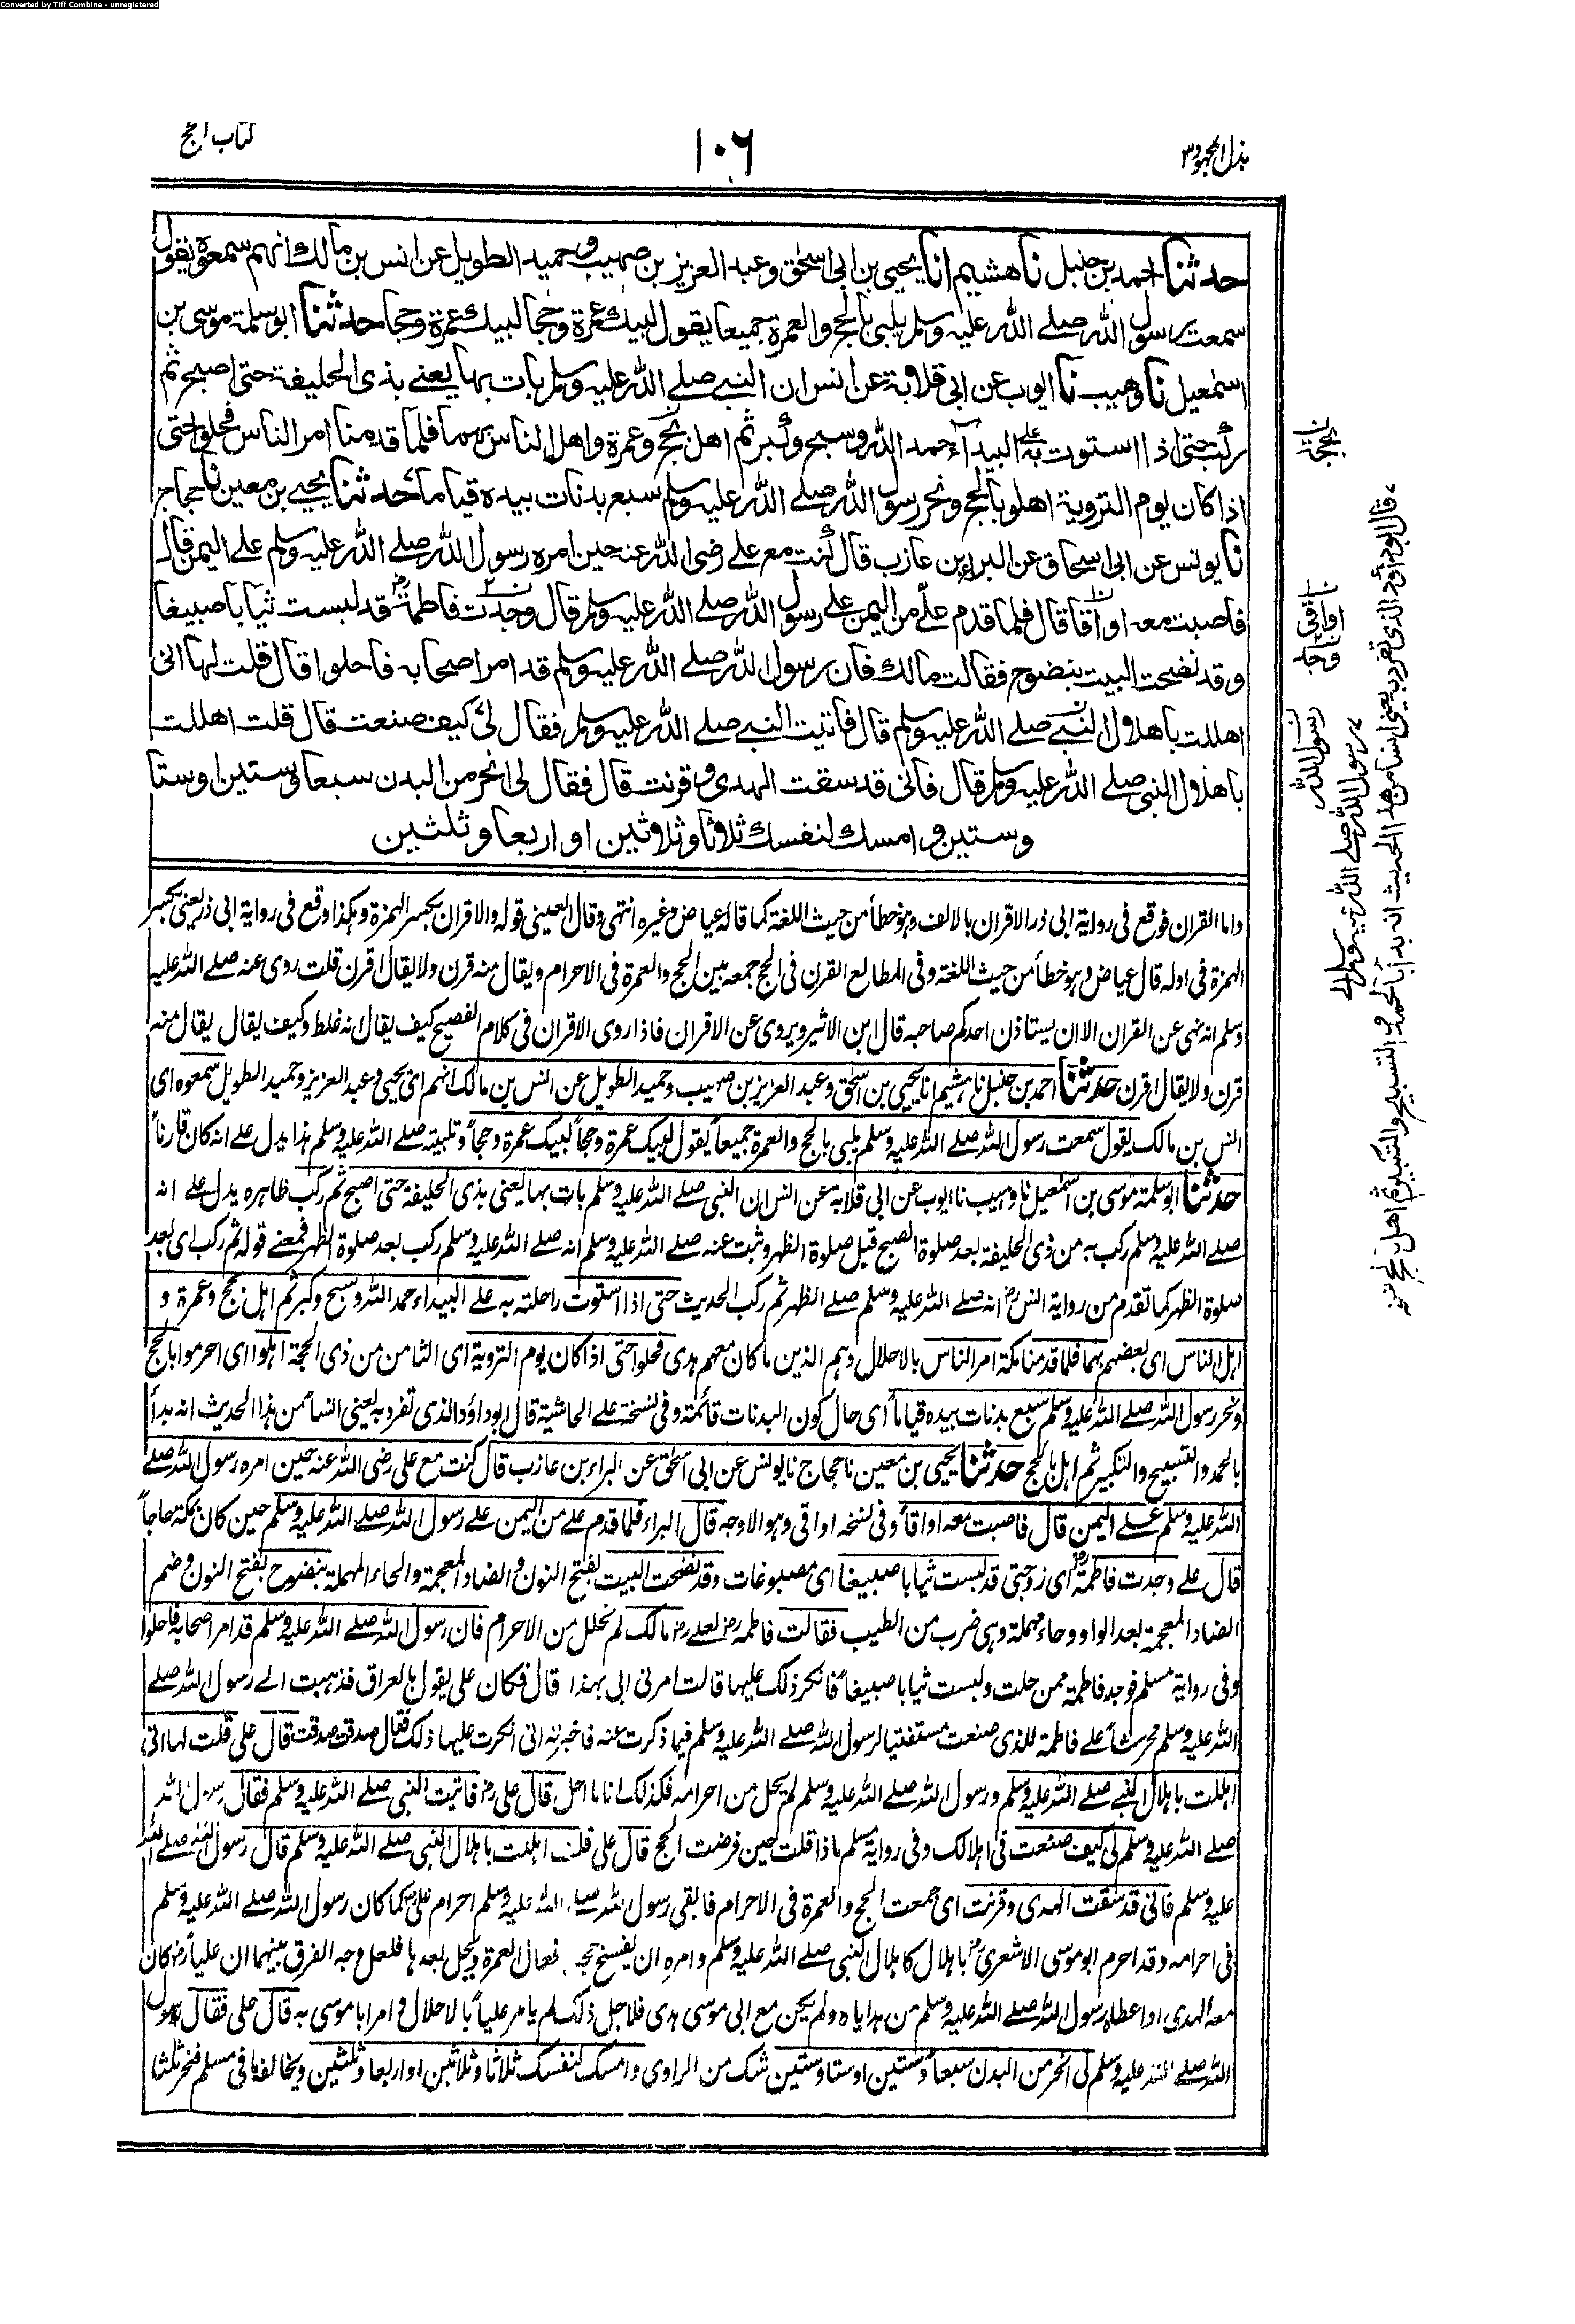 Converted by Tiff Combine - unregistered
بذل المجهود ٣
١٠٦
كتاب الحج
حدثنا احمد بن حنبل نا هشيم انا يحيى بن ابى اسحٰق وعبد العزيز بن صهيب وحميد الطويل عن انس بن مالك انهم سمعوه يقول
سمعت رسول الله صلے الله عليه وسلم يلبى بالحج والعمرة جميعا يقول لبيك عمرة وحجا لبيك عمرة وحجا حدثنا ابو سلمة موسى بن
اسمٰعيل نا وهيب نا ايوب عن ابى قلابة عن انس ان النبى صلے الله عليه وسلم بات بها يعنے بذى الحليفة حتى اصبح ثم
ركب حتى اذا استوت به على البيداء حمد الله وسبح وكبر ثم اهل بحج وعمرة واهل الناس بهما فلما قدمنا امر الناس فحلوا حتى
اذا كان يوم التروية اهلوا بالحج ونحر رسول الله صلے الله عليه وسلم سبع بدنات بيده قياما حدثنا يحيى بن معين نا حجاج
نا يونس عن ابى اسحاق عن البراء بن عازب قال كنت مع على رضى الله عنه حين امره رسول الله صلے الله عليه وسلم على اليمن قال
فاصبت معه اواقا قال فلما قدم على من اليمن على رسول الله صلے الله عليه وسلم قال وجدت فاطمة قد لبست ثيابا صبيغا
وقد نضحت البيت بنضوح فقالت مالك فان رسول الله صلے الله عليه وسلم قد امر اصحابه فاحلوا قال قلت لها انى
اهللت باهلال النبى صلے الله عليه وسلم قال فاتيت النبى صلے الله عليه وسلم فقال لى كيف صنعت قال قلت اهللت
باهلال النبى صلے الله عليه وسلم قال فانى قد سقت الهدى وقرنت قال فقال لى انحر من البدن سبعا وستين او ستا
وستين وامسك لنفسك ثلاثا وثلاثين او اربعا وثلثين
واما القران فوقع فى رواية ابى ذر الاقران بالالف وهو خطأ من حيث اللغة كما قاله عياض وغيره انتهى وقال العينى قوله والاقران بكسر الهمزة وهكذا وقع فى رواية ابى ذر يعنى بكسر
الهمزة فى اوله قال عياض وهو خطأ من حيث اللغة وفى المطالع القرن فى الحج جمعه بين الحج والعمرة فى الاحرام ويقال منه قرن ولا يقال اقرن قلت روى عنه صلے الله عليه
وسلم انه نهى عن القران الا ان يستاذن احدكم صاحبه قال ابن الاثير ويروى عن الاقران فاذا روى الاقران فى كلام الفصيح كيف يقال انه غلط وكيف يقال يقال منه
قرن ولا يقال اقرن حدثنا احمد بن حنبل نا هشيم انا يحيى بن ابى اسحٰق وعبد العزيز بن صهيب وحميد الطويل عن انس بن مالك انهم اى يحيى وعبد العزيز وحميد الطويل سمعوه اى
انس بن مالك يقول سمعت رسول الله صلے الله عليه وسلم يلبى بالحج والعمرة جميعاً يقول لبيك عمرة وحجاً لبيك عمرة وحجاً وتلبيته صلے الله عليه وسلم هذا يدل على انه كان قارناً
حدثنا ابو سلمة موسى بن اسمٰعيل نا وهيب نا ايوب عن ابى قلابة عن انس ان النبى صلے الله عليه وسلم بات بها يعنى بذى الحليفة حتى اصبح ثم ركب ظاهره يدل على انه
صلے الله عليه وسلم ركب به من ذى الحليفة بعد صلوة الصبح قبل صلوة الظهر وثبت عنه صلے الله عليه وسلم انه صلے الله عليه وسلم ركب بعد صلوة الظهر فمعنے قوله ثم ركب اى بعد
صلوة الظهر كما تقدم من رواية انس انه صلے الله عليه وسلم صلے الظهر ثم ركب الحديث حتى اذا استوت راحلته به على البيداء حمد الله وسبح وكبر ثم اهل بحج وعمرة و
اهل الناس اى بعضهم بهما فلما قدمنا مكة امر الناس بالاحلال وهم الذين ما كان معهم هدى فحلوا حتى اذا كان يوم التروية اى الثامن من ذى الحجة اهلوا اى احرموا بالحج
ونحر رسول الله صلے الله عليه وسلم سبع بدنات بيده قياماً اى حال كون البدنات قائمة وفى نسخة على الحاشية قال ابو داؤد الذى تفرد به يعنى انسا من هذا الحديث انه بدأ
بالحمد والتسبيح والتكبير ثم اهل بالحج حدثنا يحيى بن معين نا حجاج نا يونس عن ابى اسحٰق عن البراء بن عازب قال كنت مع على رضى الله عنه حين امره رسول الله صلے
الله عليه وسلم على اليمن قال فاصبت معه اواقاً وفى نسخه اواقى وهو الاوجه قال البراء فلما قدم على من اليمن على رسول الله صلے الله عليه وسلم حين كان بمكة حاجاً
قال على وجدت فاطمة اى زوجتى قد لبست ثيابا صبيغا اى مصبوغات وقد نضحت البيت بفتح النون والضاد المعجمة والحاء المهملة بنضوح بفتح النون وضم
الضاد المعجمة بعد الواو وحاء مهملة وهى ضرب من الطيب فقالت فاطمه لعلى مالك لم تحلل من الاحرام فان رسول الله صلے الله عليه وسلم قد امر اصحابه فاحلوا
وفى رواية مسلم فوجد فاطمة ممن حلت ولبست ثيابا صبيغاً فانكر ذلك عليها قالت امرنى ابى بهذا قال فكان على يقول بالعراق فذهبت الى رسول الله صلے
الله عليه وسلم محرشاً على فاطمة للذى صنعت مستفتيا لرسول الله صلے الله عليه وسلم فيما ذكرت عنه فاخبرته انى انكرت عليها ذلك فقال صدقت صدقت قال على قلت لها انى
اهللت باهلال النبى صلے الله عليه وسلم ورسول الله صلے الله عليه وسلم لم يحل من احرامه فكذلك انا ما احل قال على فاتيت النبى صلے الله عليه وسلم فقال رسول الله
صلے الله عليه وسلم لى كيف صنعت فى اهلالك وفى رواية مسلم ماذا قلت حين فرضت الحج قال على قلت اهللت باهلال النبى صلے الله عليه وسلم قال رسول الله صلے الله
عليه وسلم فانى قد سقت الهدى وقرنت اى جمعت الحج والعمرة فى الاحرام فابقى رسول الله صلے الله عليه وسلم احرام على كما كان رسول الله صلے الله عليه وسلم
فى احرامه وقد احرم ابو موسى الاشعرى باهلال كاهلال النبى صلے الله عليه وسلم وامره ان يفسخ افعال العمرة ويحل بعدها فلعل وجه الفرق بينهما ان علياً كان
معه الهدى او اعطاه رسول الله صلے الله عليه وسلم من هداياه ولم يكن مع ابى موسى هدى فلاجل ذلك لم يامر علياً بالاحلال وامر ابا موسى به قال على فقال رسول
الله صلے الله عليه وسلم لى انحر من البدن سبعاً وستين او ستا وستين شك من الراوى وامسك لنفسك ثلاثا وثلاثين او اربعا وثلثين ويخالفه ما فى مسلم فنحر ثلثا
بحجة
اواقى
رسول الله
رسول الله صلے الله عليه وسلم
قال ابو داؤد الذى تفرد به يعنى انسا من هذا الحديث انه بدأ بالحمد والتسبيح والتكبير ثم اهل بالحج نسخه